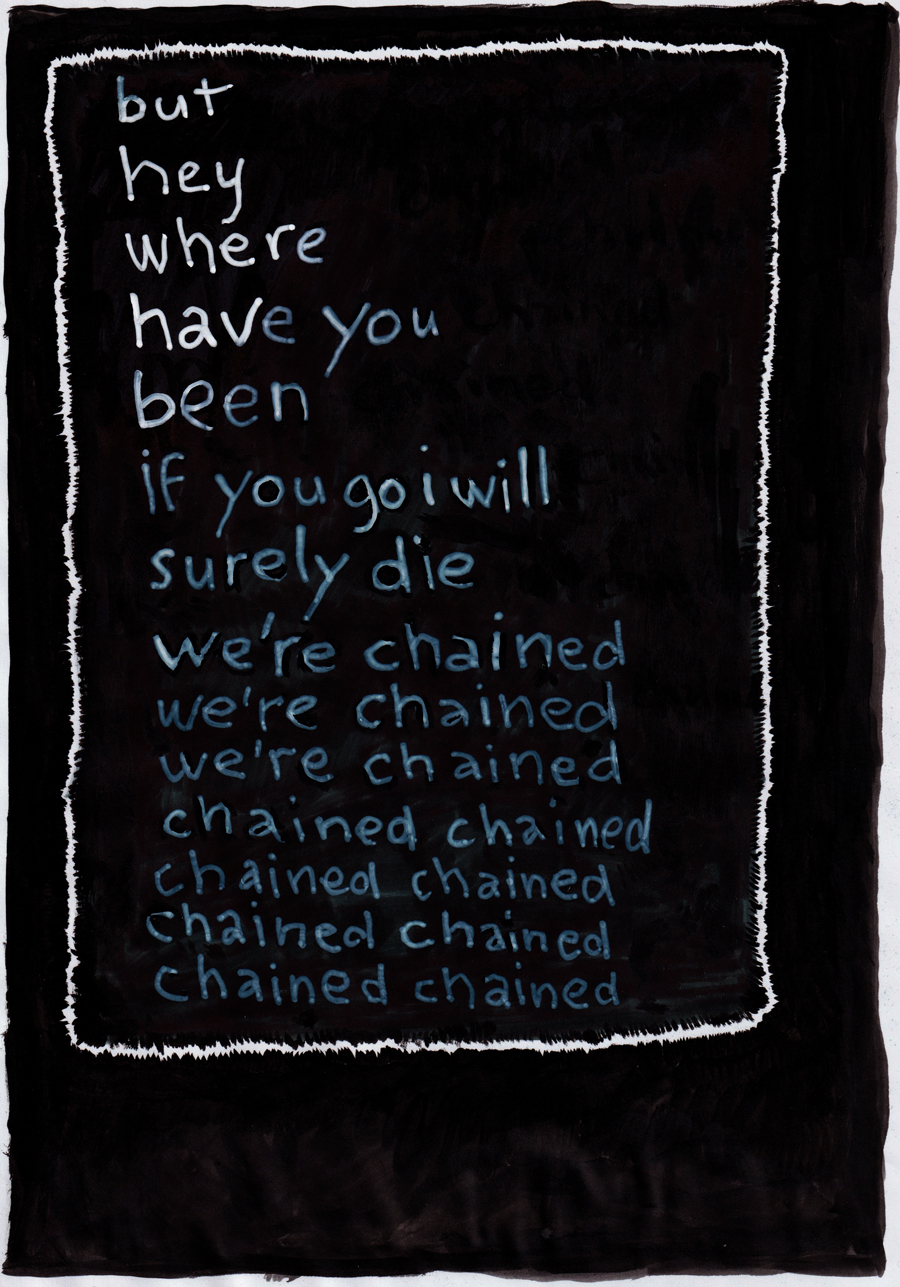 but
hey
where
have you
been
if you go i will
surely die
we're chained
we're chained
we're chained
chained chained
chained chained
chained chained
chained chained